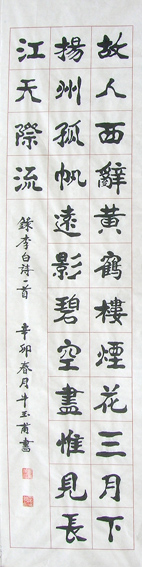 故人西辭黃鶴樓煙花三月下
揚州孤帆遠影碧空盡惟見長
江天際流
錄李白詩一首
辛卯春月牛玉甫書